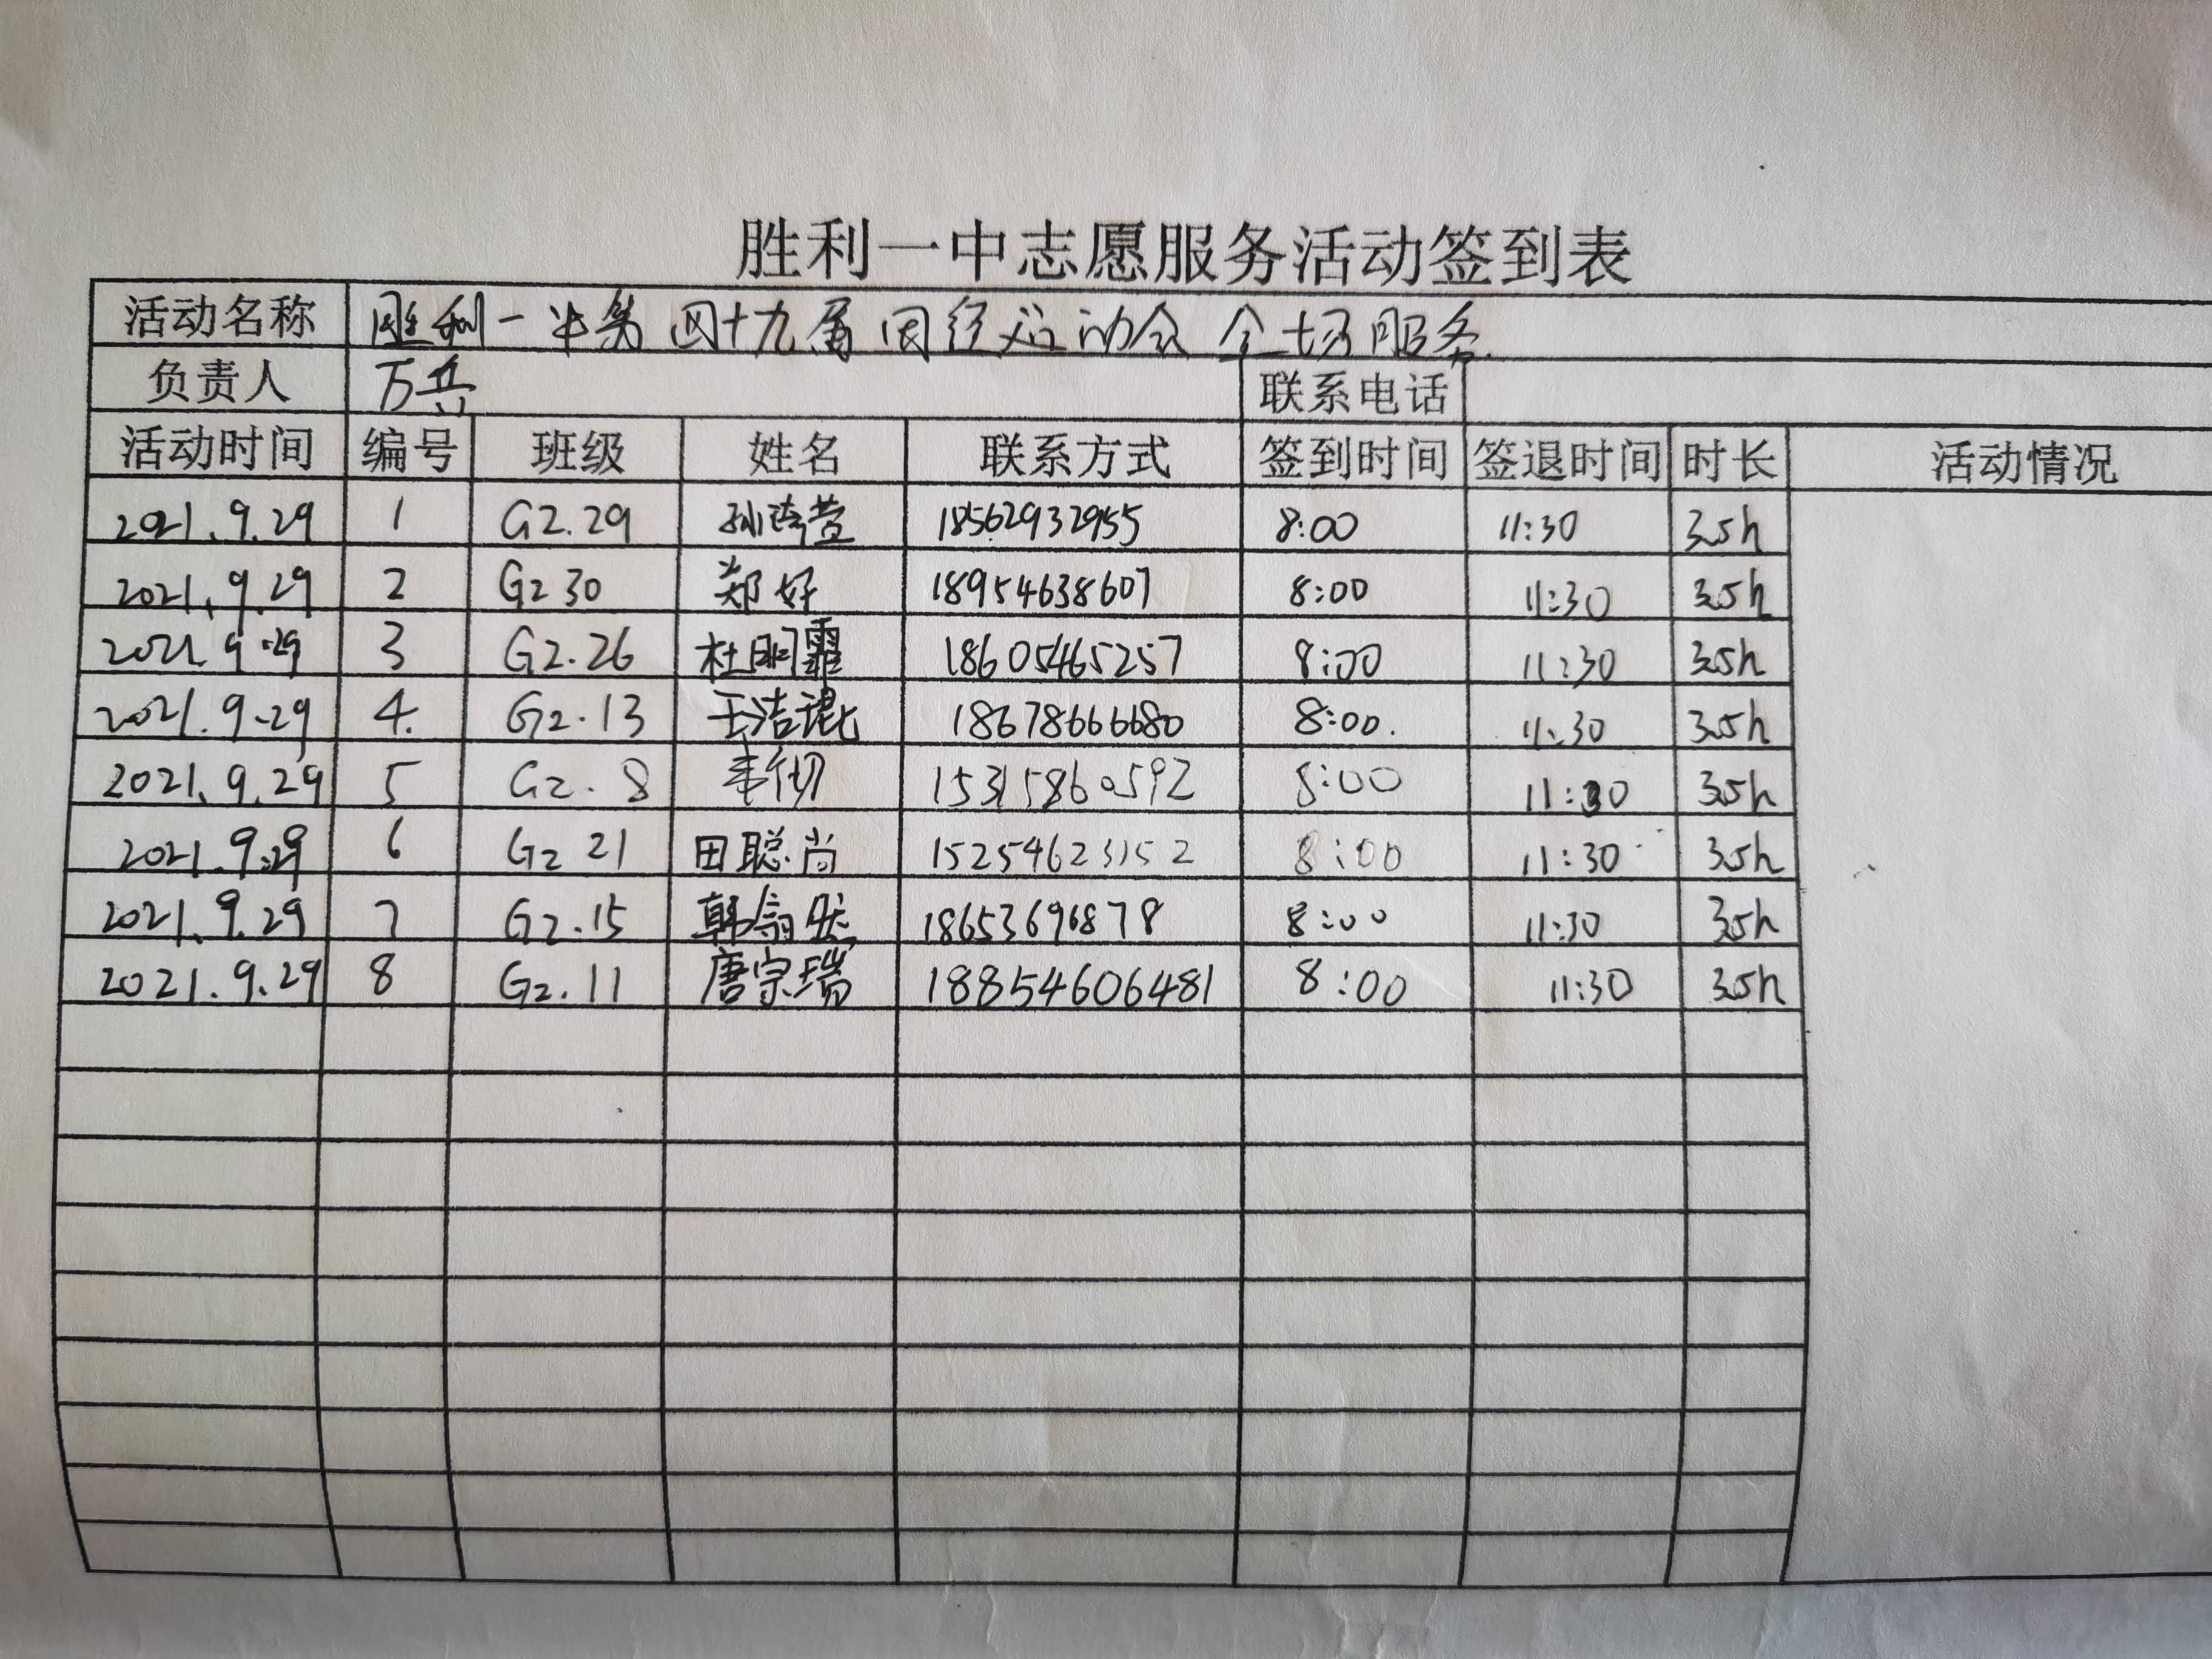 胜利一中志愿服务活动签到表
活动名称 胜利一中第四十九届田径运动会 全场服务
负责人 万兵 联系电话
活动时间 编号 班级 姓名 联系方式 签到时间 签退时间 时长 活动情况
2021.9.29 1 G2.29 18562932955 8:00 11:30 3.5h
2021.9.29 2 G2 30 郑好 18954638607 8:00 11:30 3.5h
2021.9.29 3 G2.26 杜明霏 18605465257 8:00 11:30 3.5h
2021.9.29 4. G2.13 王洁琨 18678666680 8:00. 11:30 3.5h
2021.9.29 5 G2.8 15315860592 8:00 11:30 3.5h
2021.9.29 6 G2 21 田聪尚 15254623152 8:00 11:30 3.5h
2021.9.29 7 G2.15 18653696878 8:00 11:30 3.5h
2021.9.29 8 G2.11 唐宗瑞 18854606481 8:00 11:30 3.5h